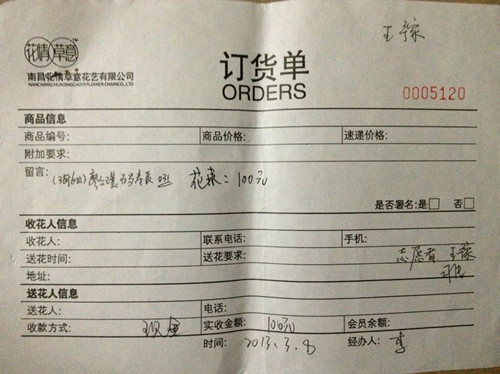 花情草意™
南昌花情草意花艺有限公司
订货单
ORDERS
0005120
商品信息
商品编号: 商品价格: 速递价格:
附加要求:
留言: 花束: 100元
是否署名:是□ 否□
收花人信息
收花人: 联系电话: 手机:
送花时间: 送花要求: 志愿者 王
地址:
送花人信息
送花人: 电话:
收款方式: 现金 实收金额: 100元 会员余额:
时间: 2013.3.8 经办人: 李